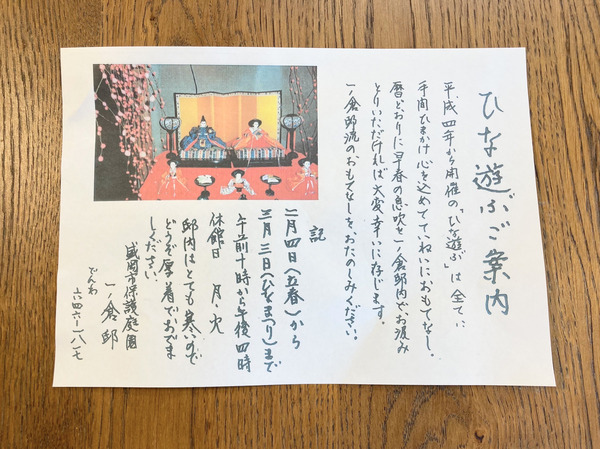 ひな遊ぶご案内
平成四年から開催の「ひな遊ぶ」は 全てに
手間ひまかけ 心を込めて ていねいにおもてなし。
暦どおりに早春の息吹を一ノ倉邸内で、お汲み
とりいただければ大変幸いに存じます。
一ノ倉邸流のおもてなしを、おたのしみください。
記
二月四日(立春)から
三月三日(ひなまつり)まで
午前十時から午後四時
休館日 月・火
邸内はとても寒いので
どうぞ厚着でおでま
しください。
盛岡市保護庭園
一ノ倉邸
でんわ
六四六-一八一七